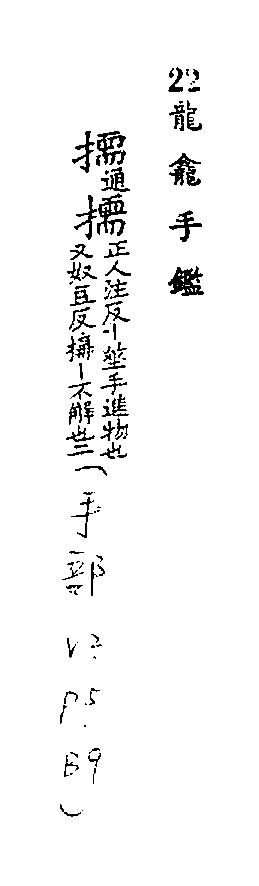 22龍龕手鑑
擩通擩正人注反丨莝手進物也
又奴豆反搆丨不解也二
(手部 V2 P5. B9)